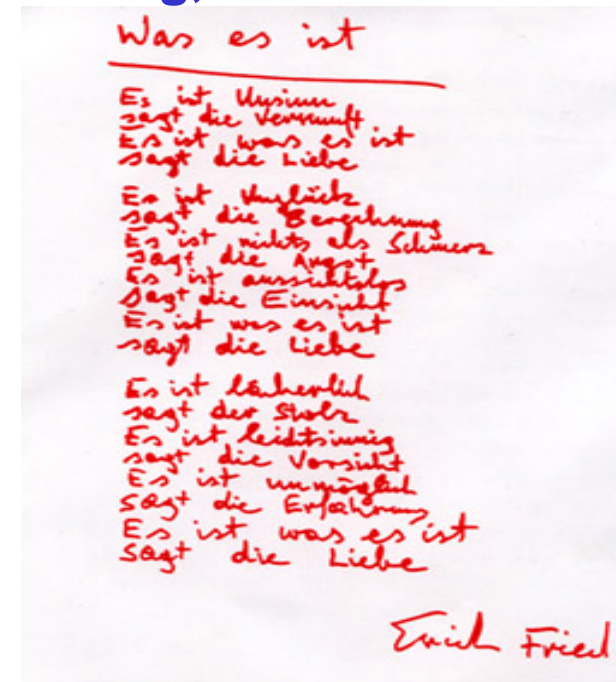 Was es ist
Es ist Unsinn
sagt die Vernunft
Es ist was es ist
sagt die Liebe
Es ist Unglück
sagt die Berechnung
Es ist nichts als Schmerz
sagt die Angst
Es ist aussichtslos
sagt die Einsicht
Es ist was es ist
sagt die Liebe
Es ist lächerlich
sagt der Stolz
Es ist leichtsinnig
sagt die Vorsicht
Es ist unmöglich
sagt die Erfahrung
Es ist was es ist
sagt die Liebe
Erich Fried